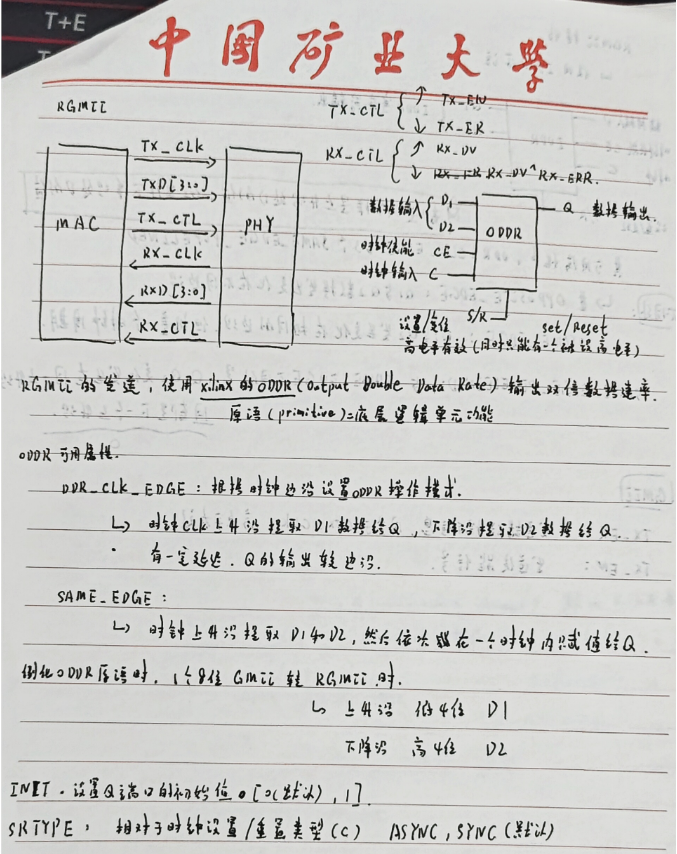 T+E
中国矿业大学
RGMII
TX_CTL { ↑ TX_EN
↓ TX_ER
RX_CTL { ↑ RX_DV
↓ RX_DV^RX_ERR.
MAC
PHY
TX_CLK
TXD[3:0]
TX_CTL
RX_CLK
RXD[3:0]
RX_CTL
数据输入 { D1
D2
时钟使能 CE
时钟输入 C
ODDR
Q 数据输出.
S/R
设置/复位 set/Reset
高电平有效(同时只能有一个被设高电平)
RGMII的发送,使用xilinx的ODDR(Output Double Data Rate)输出双倍数据速率.
原语(primitive)=底层逻辑单元功能
ODDR可用属性.
DDR_CLK_EDGE:根据时钟边沿设置ODDR操作模式.
↳ 时钟CLK上升沿提取D1数据给Q,下降沿提取D2数据给Q
有一定延迟.Q的输出较边沿.
SAME_EDGE:
↳ 时钟上升沿提取D1和D2,然后依次在一个时钟内赋值给Q.
例化ODDR原语时,1个8位GMII转RGMII时.
↳ 上升沿 低4位 D1
下降沿 高4位 D2
INIT.设置Q端口的初始值。[0(默认),1].
SRTYPE:相对于时钟设置/重置类型(C) ASYNC,SYNC(默认)